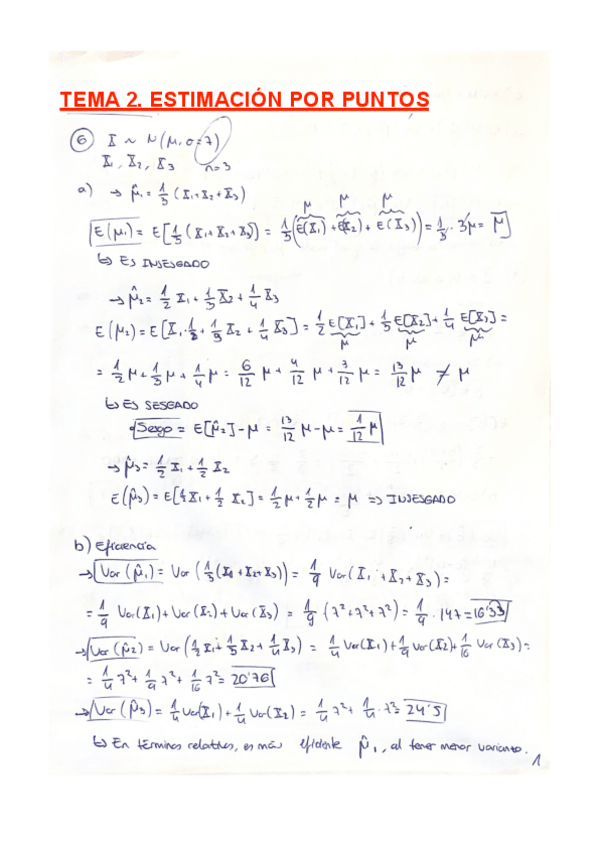 TEMA 2. ESTIMACIÓN POR PUNTOS
⑥ X ~ N(μ, σ=7)
X₁, X₂, X₃ n=3
a) → μ̂₁ = 1/3 (X₁+X₂+X₃)
μ μ μ
E(μ₁) = E[1/3 (X₁+X₂+X₃)] = 1/3 (E(X₁) + E(X₂) + E(X₃)) = 1/3 · 3μ = μ
↳ ES INSESGADO
→ μ̂₂ = 1/2 X₁ + 1/3 X₂ + 1/4 X₃
E(μ₂) = E[X₁ · 1/2 + 1/3 X₂ + 1/4 X₃] = 1/2 E[X₁] + 1/3 E[X₂] + 1/4 E[X₃] =
μ μ μ
= 1/2 μ + 1/3 μ + 1/4 μ = 6/12 μ + 4/12 μ + 3/12 μ = 13/12 μ ≠ μ
↳ ES SESGADO
Sesgo = E[μ̂₂] - μ = 13/12 μ - μ = 1/12 μ
→ μ̂₃ = 1/2 X₁ + 1/2 X₂
E(μ̂₃) = E[1/2 X₁ + 1/2 X₂] = 1/2 μ + 1/2 μ = μ => INSESGADO
b) Eficiencia
→ Var(μ̂₁) = Var(1/3 (X₁+X₂+X₃)) = 1/9 Var(X₁+X₂+X₃) =
= 1/9 Var(X₁) + Var(X₂) + Var(X₃) = 1/9 (7²+7²+7²) = 1/9 · 147 = 16'33
→ Var(μ̂₂) = Var(1/2 X₁ + 1/3 X₂ + 1/4 X₃) = 1/4 Var(X₁) + 1/9 Var(X₂) + 1/16 Var(X₃) =
= 1/4 7² + 1/9 7² + 1/16 7² = 20'76
→ Var(μ̂₃) = 1/4 Var(X₁) + 1/4 Var(X₂) = 1/4 7² + 1/4 · 7² = 24'5
↳ En términos relativos, es más eficiente μ̂₁, al tener menor varianza.
1